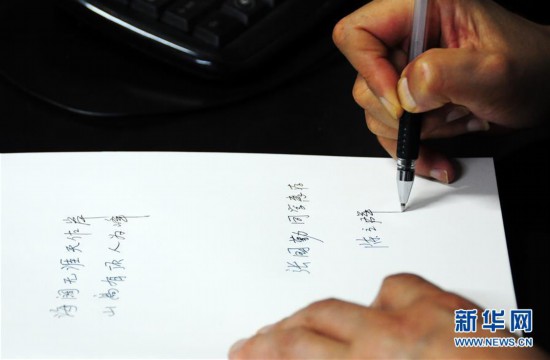 海阔无涯天作岸
山高有顶人为峰
张国勤同学惠存
陈立群
新华网
WWW.NEWS.CN